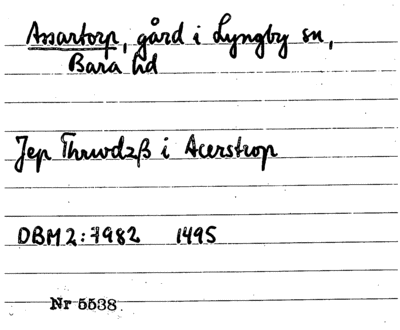 Assartorp, gård i Lyngby sn,
Bara hd
Jep Thrwdzß i Acerstrop
DBM2:7982 1495
Nr 5538